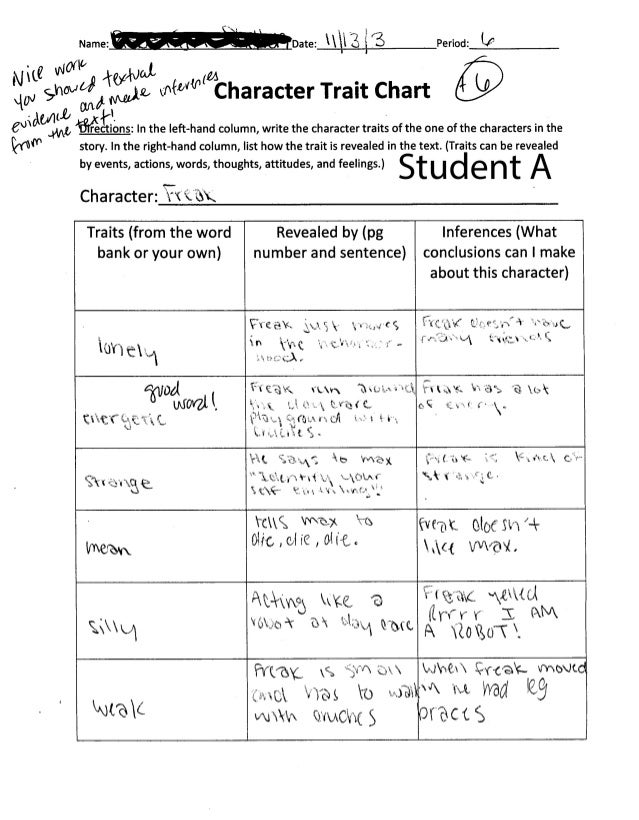 Name: Date: 11/13/3 Period: 6
Nice work
You showed textual
evidence and made inferences
from the text!
Character Trait Chart
+6
Directions: In the left-hand column, write the character traits of the one of the characters in the
story. In the right-hand column, list how the trait is revealed in the text. (Traits can be revealed
by events, actions, words, thoughts, attitudes, and feelings.)
Student A
Character: Freak
Traits (from the word
bank or your own)
Revealed by (pg
number and sentence)
Inferences (What
conclusions can I make
about this character)
lonely
Freak just moves
in the
Freak doesn't have
many friends
energetic
good
word!
Freak run around
the day care
Playground with
Freak has a lot
of energy.
strange
He says to max
"Identify your
self
Freak is kind of
strange.
mean
tells max to
die, die, die.
Freak doesn't
like max.
silly
Acting like a
robot at day care
Freak yelled
Rrrrr I AM
A ROBOT!
weak
Freak is small
and has to walk
with cruches
When freak moved
in he had leg
braces